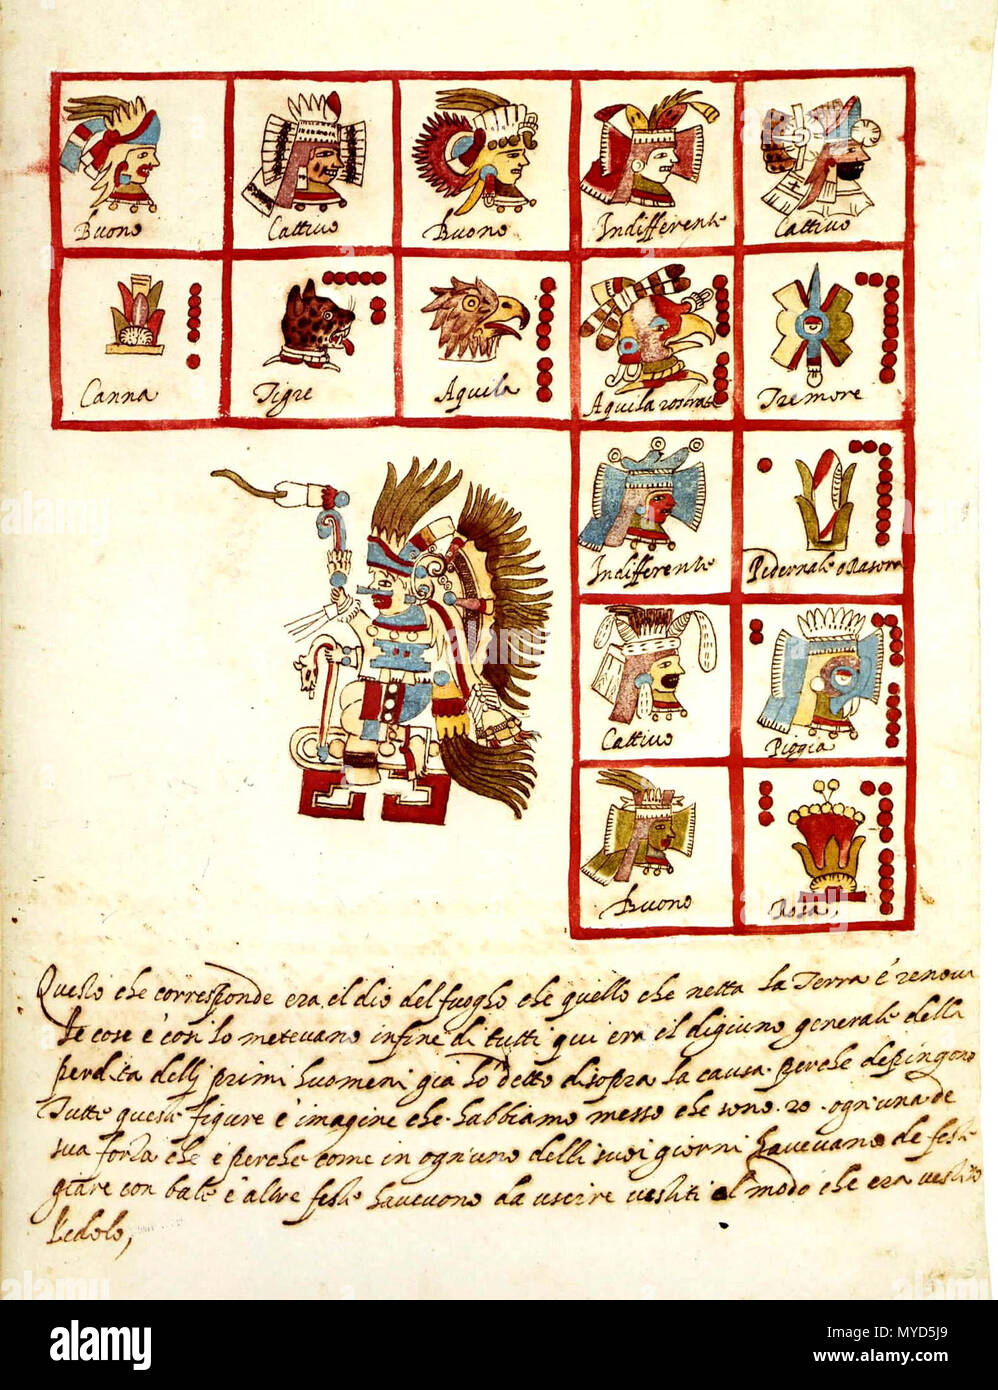 Buono Cattiuo Buono Indifferente Cattiuo
Canna Tigre Aquila Aquila rostrata Tremore
Indifferente Pedernale o Rasora
Cattiuo Pioggia
Buono Rosa,
Questo che corresponde era el dio del fuogho che quello che netta la Terra e' renoua
le cose e' cosi lo metevano infine di tutti qui era il digiuno generale della
perdita delli primi huomeni gia ho' detto disopra la causa perche depingono
Tutte queste figure e' imagine che habbiamo messo che sono .20. ogn'una de
sua sorta che e perche come in ogn'uno delli suoi giorni havevano de feste
giare con bale e' altre feste havevono da uscire vestiti al modo che era vestito
l'edolo,
alamy
alamy
Image ID: MYD5J9
www.alamy.com